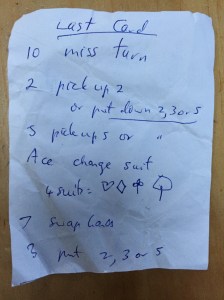 Last Card
10 miss turn
2 pick up 2
or put down 2, 3 or 5
5 pick up 5 or "
Ace change suit
4 suits = ♡ ◇ ♧ ♤
7 swap
3 put 2, 3 or 5